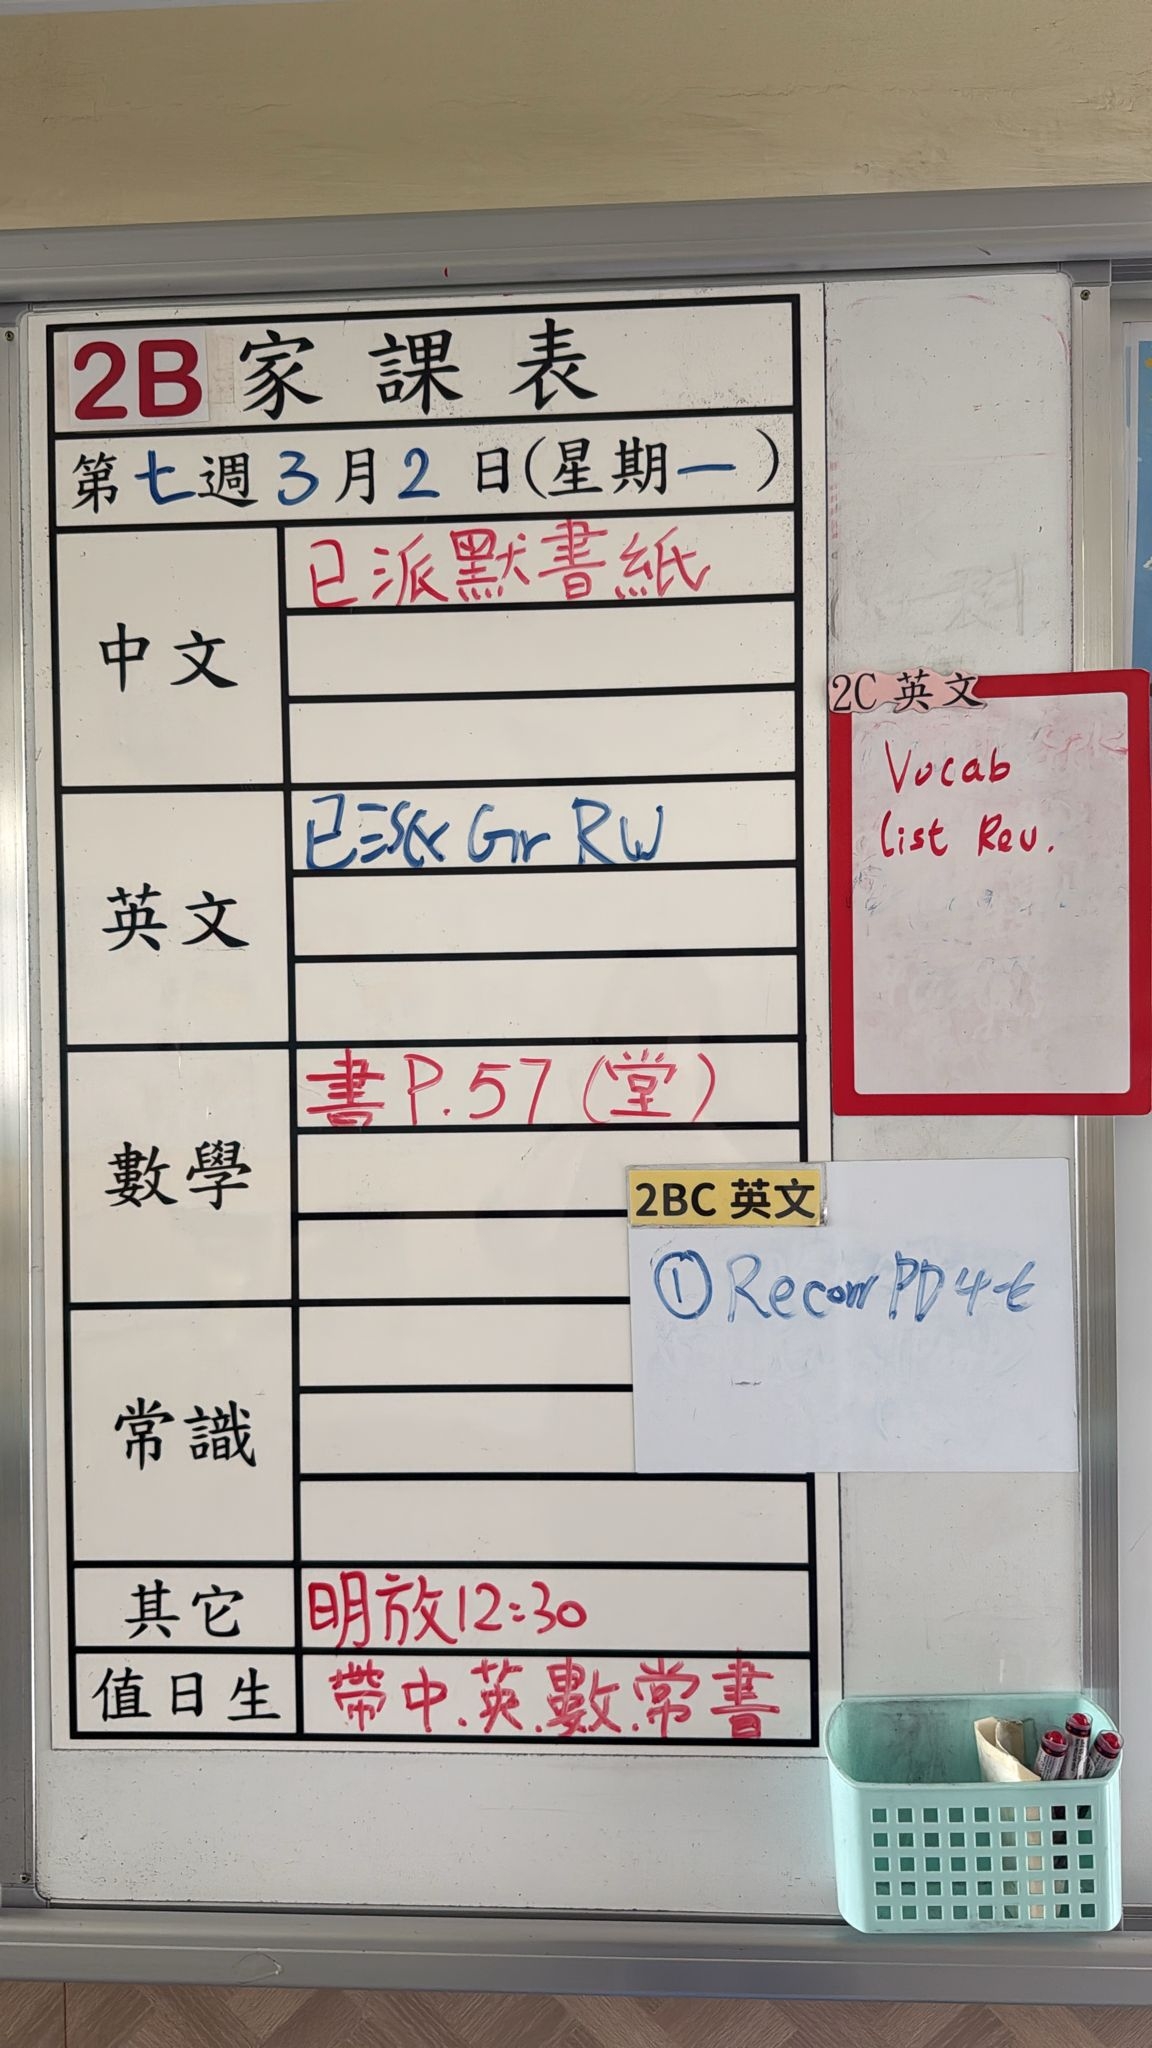 2B 家課表
第七週3月2日(星期一)
中文
已派默書紙
英文
已派 Gr RW
數學
書P.57(堂)
常識
其它
明放12:30
值日生
帶中.英.數.常書
2C 英文
Vocab
list Rev.
2BC 英文
①